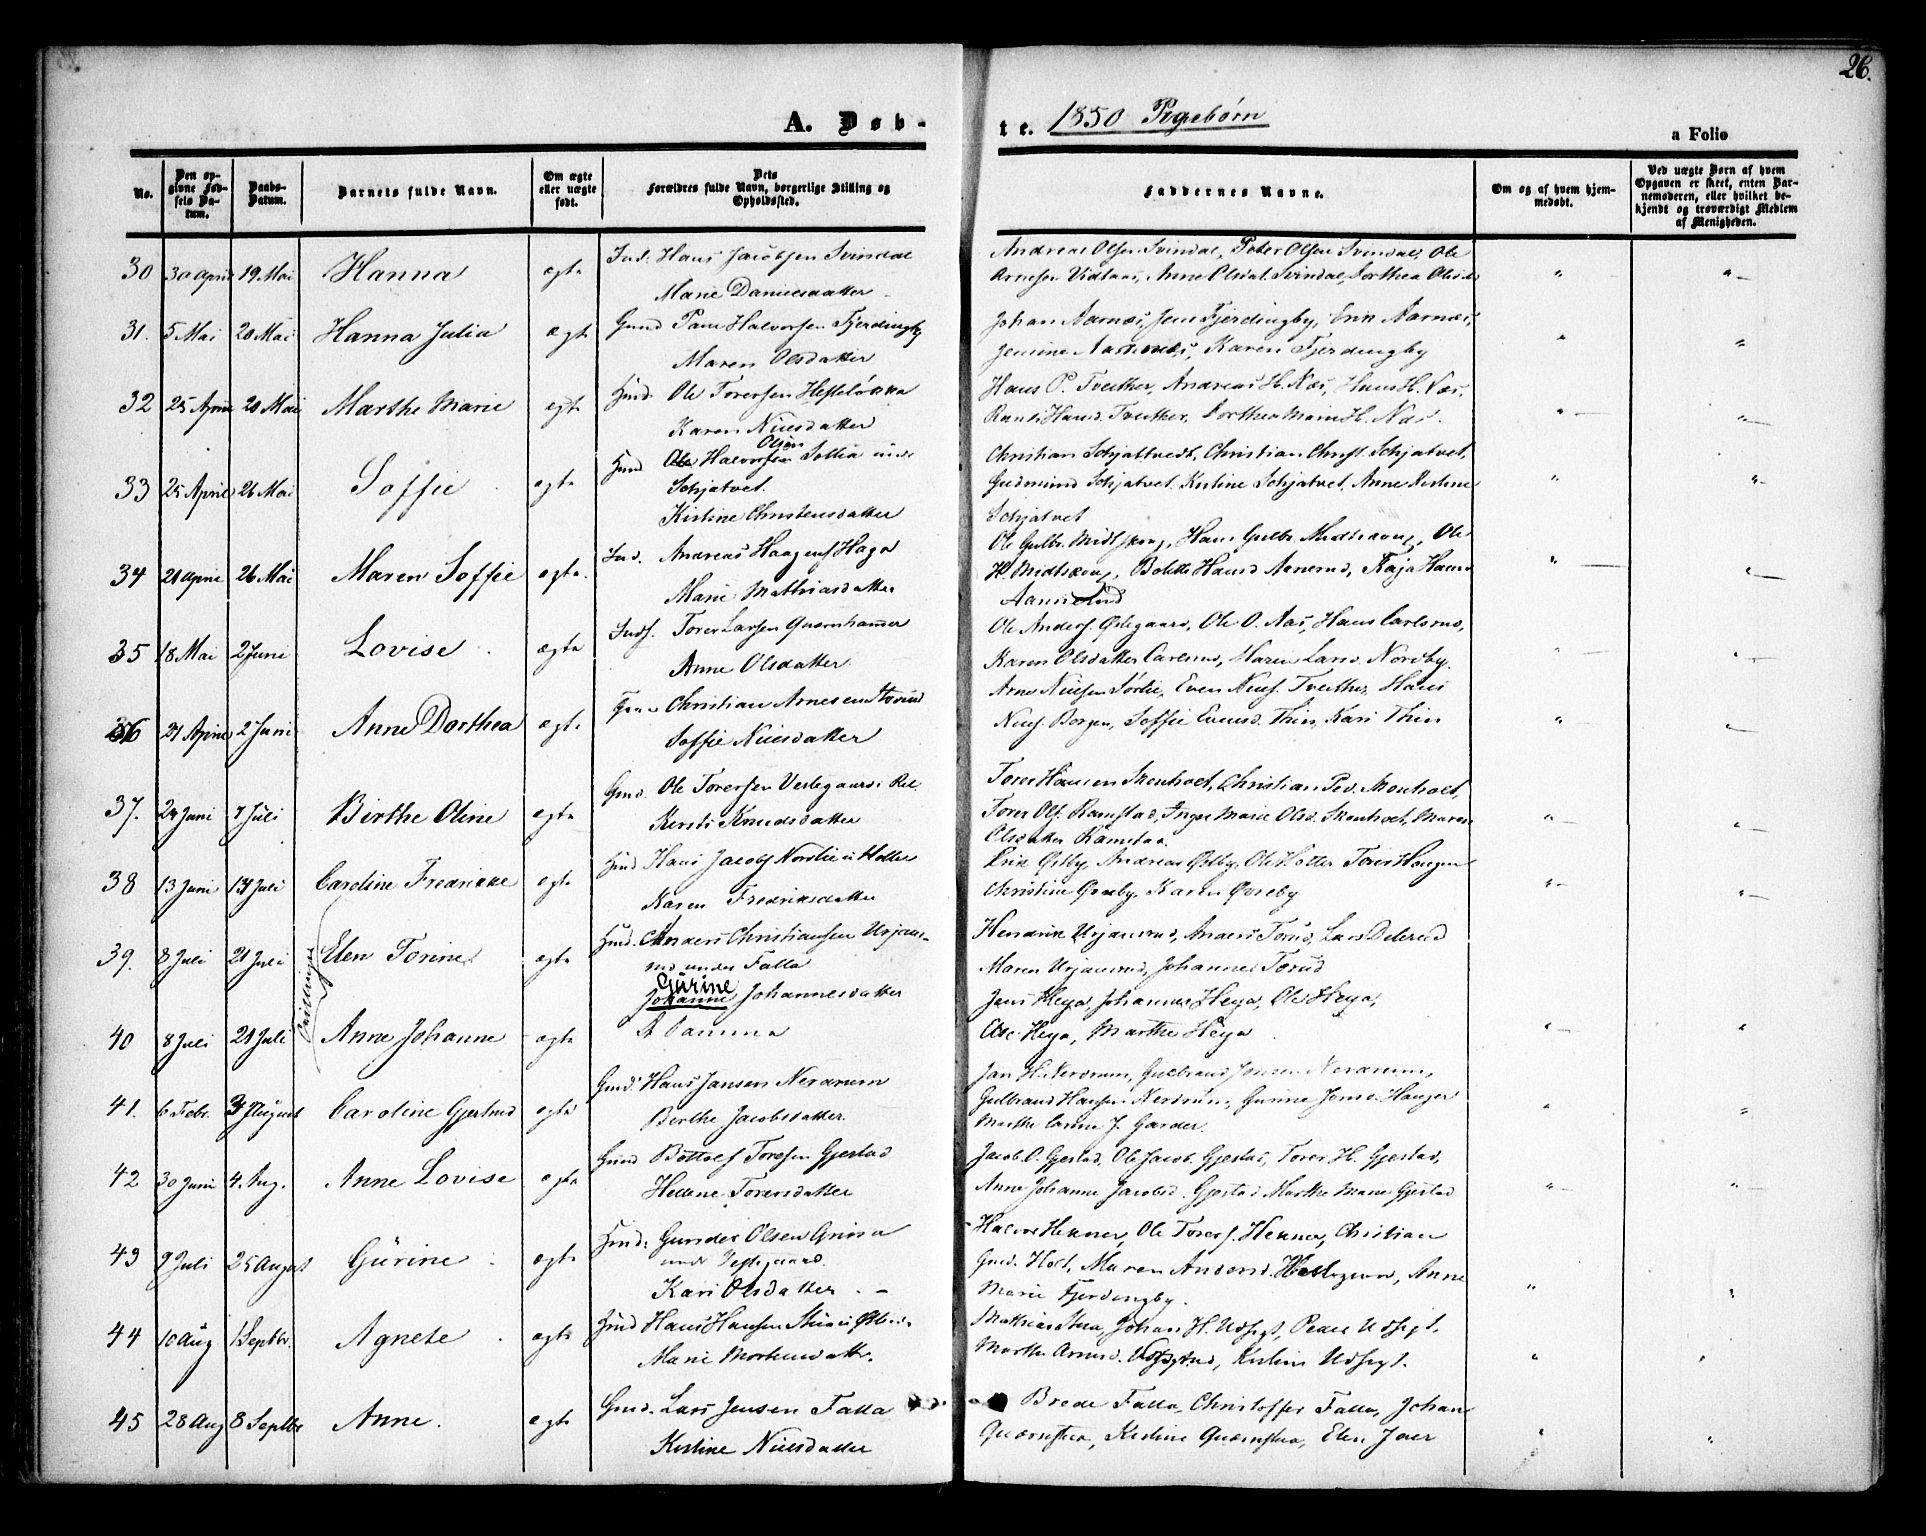 26.
A. Døb-
te. 1850 Pigebørn
a Folio
No.
Den opgivne Fødsels Datum.
Daabs-Datum.
Barnets fulde Navn.
Om ægte eller uægte født.
Dets Forældres fulde Navn, borgerlige Stilling og Opholdssted.
Faddernes Navne.
Om og af hvem hjemmedøbt.
Ved uægte Børn af hvem Opgaven er skeet, enten Barnemoderen, eller hvilket bekjendt og troværdigt Medlem af Menigheden.
30 30 April 19 Mai Hanna ægte Ind. Hans Jacobsen Svindal
Marie Danielsdatter
Andreas Olsen Svindal, Peter Olsen Svindal, Ole
Arnesen Vidlaas, Anne Olsdat. Svindal, Dorthea Olsd.
31. 5 Mai 20 Mai Hanna Julia ægte Gmd Paul Halvorsen Fjerdingby
Maren Olsdatter
Johan Aarnæs, Jens Fjerdingby, Erik Aarnæs,
Jensine Aarnæs, Karen Fjerdingby
32 25 April 20 Mai Marthe Marie ægte Hmd. Ole Torersen Hesteløkka
Karen Nielsdatter
Hans P. Tveither, Andreas H. Næs, Hans H. Næs,
Randi Hansd. Tveither, Dorthea Marie H. Næs.
33 25 April 26 Mai Soffie ægte Hmd Halvorsen Olsen Sollia under
Schjatvet.
Kirstine Christensdatter
Christian Schjattvedt, Christian Christ. Schjatvet,
Gudmund Schjatvet, Kirstine Schjatvet, Anne Kirstine
Schjatvet
34 21 April 26 Mai Maren Soffie ægte. Ind. Andreas Haagens Haga
Marie Mathiasdatter
Ole Gulbr. Midtskoug, Hans Gulbr. Midtskoug, Ole
H. Midtskoug, Bolette Hansd Aanerud, Kaja Hansd
Aannerud
35 18 Mai 2 Juni Lovise ægte Inds. Torer Larsen Quernhammer
Anne Olsdatter
Ole Anders. Østegaard, Ole O. Aas, Hans Carlsrud,
Karen Olsdatter Carlsrud, Maren Larsd. Nordby.
36 21 April 2 Juni Anne Dorthea ægte. Christian Arnesen
Soffie Nielsdatter
Arne Nielsen Sørlie, Even Niels. Tveither, Hans
Niels. Borgen, Soffie Evensd. Thin, Kari Thin
37. 24 Juni 7 Juli Birthe Oline ægte Gmd. Ole Torersen Vestegaard
Kersti Knudsdatter
Torer Hansen Skonhoet, Christian Ped. Monhoet,
Torer Ols. Ramstad, Inger Marie Olsd. Skonhoet, Maren
Olsdatter Ramstad
38 13 Juni 14 Juli Caroline Fredrikke ægte Hmd Hans Jacobs Nordlie i Holter
Karen Fredriksdatter
Erik Østby, Andreas Østby, Ole Holter Torer Haugen
Christine Øvreby, Karen Øvreby
39. 8 Juli 21 Juli Elen Torine ægte Hmd. Anders Christiansen Urjans-
rud under Falla
Gurine
Johanne Johannesdatter
Hendrik Urjansrud, Anders Torud, Lars Delerud
Maren Urjansrud, Johannes Torud
Tvillinger
40 8 Juli 21 Juli Anne Johanne ægte A Samma
Jens Heya, Johannes Heya, Ole Heya,
Else Heya, Marthe Heya
41. 6 Febr. 3 August Caroline Gjertrud ægte Gmd. Hans Jansen Nerdrum
Berthe Jacobsdatter.
Jan H. Nerdrum, Gulbrand Jansen Nerdrum,
Gulbrand Hansen Nerdrum, Gurine Jensd. Hauger
Marthe Carine J. Garder.
42 30 Juni 4. Aug. Anne Lovise ægte Gmd Bottolf Toresen Gjestad
Hellene Torersdatter
Jacob O. Gjestad, Ole Jacob. Gjestad, Torer H. Gjestad,
Anne Johanne Jacobsd. Gjestad Marthe Marie Gjestad
43 9 Juli 25 August Gurine ægte Hmd. Gunder Olsen Grina
under Vestegaard.
Kari Olsdatter.
Halvor Hexner, Ole Torers. Hexner, Christian
Gmd. Hoel, Maren Andersd. Anne
Marie Fjerdingby.
44 10 Aug 1 Septbr. Agnete ægte Hmd Hans Hansen Stua
Marie Mortensdattr.
Mathias Stua, Johan H. Udsigt, Peder Udsigt,
Marthe Arnesd. Udsigt, Kirstine Udsigt.
45 28 Aug 8 Septbr Anne. ægte Gmd. Lars Jensen Falla
Kirstine Nielsdatter
Brede Falla, Christoffer Falla, Johan
Quernstua, Kirstine Quernstua, Elen Joer